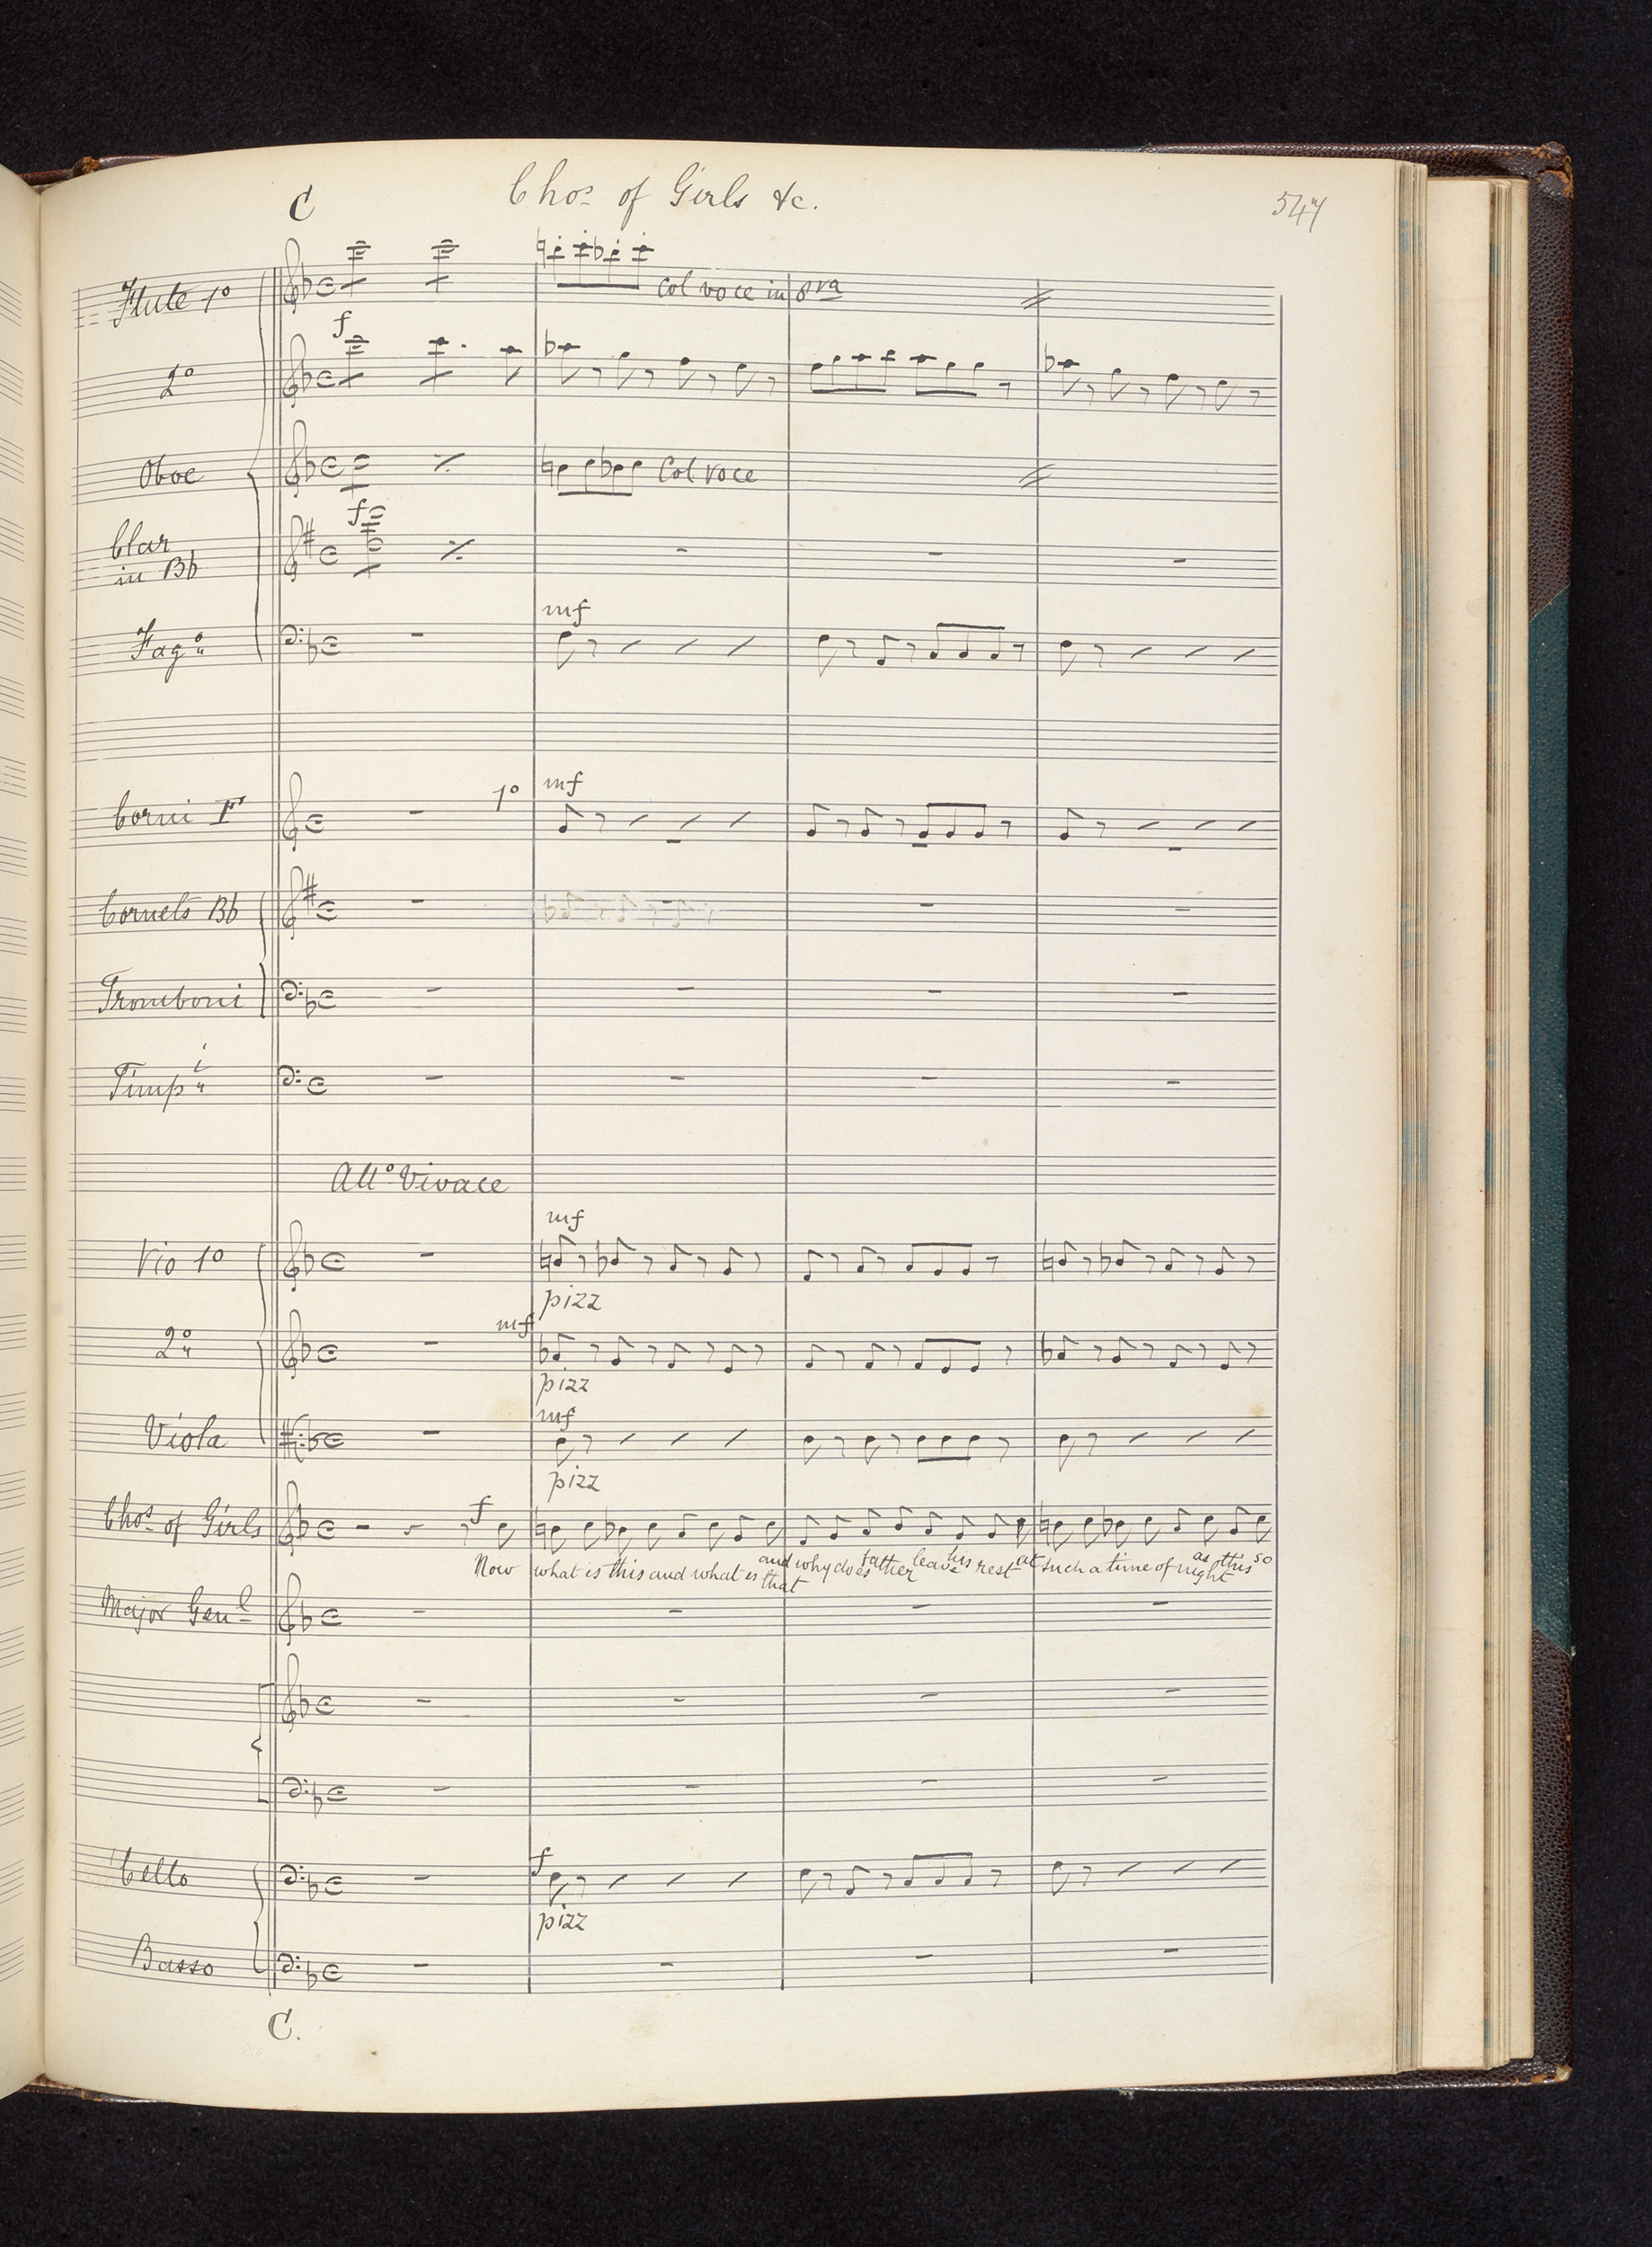 C
Chos of Girls &c.
547
Flute 1o
col voce in 8va
f
2o
Oboe
Col voce
f
Clar
in Bb
mf
Fago
Corni F
1o
mf
Cornets Bb
Tromboni
Timpi
Allo Vivace
mf
Vio 1o
pizz
mf
2o
pizz
mf
Viola
pizz
Chos of Girls
f
Now what is this and what is that and why does father leave his rest at such a time of night as this so
Major Genl
Cello
f
pizz
Basso
C.